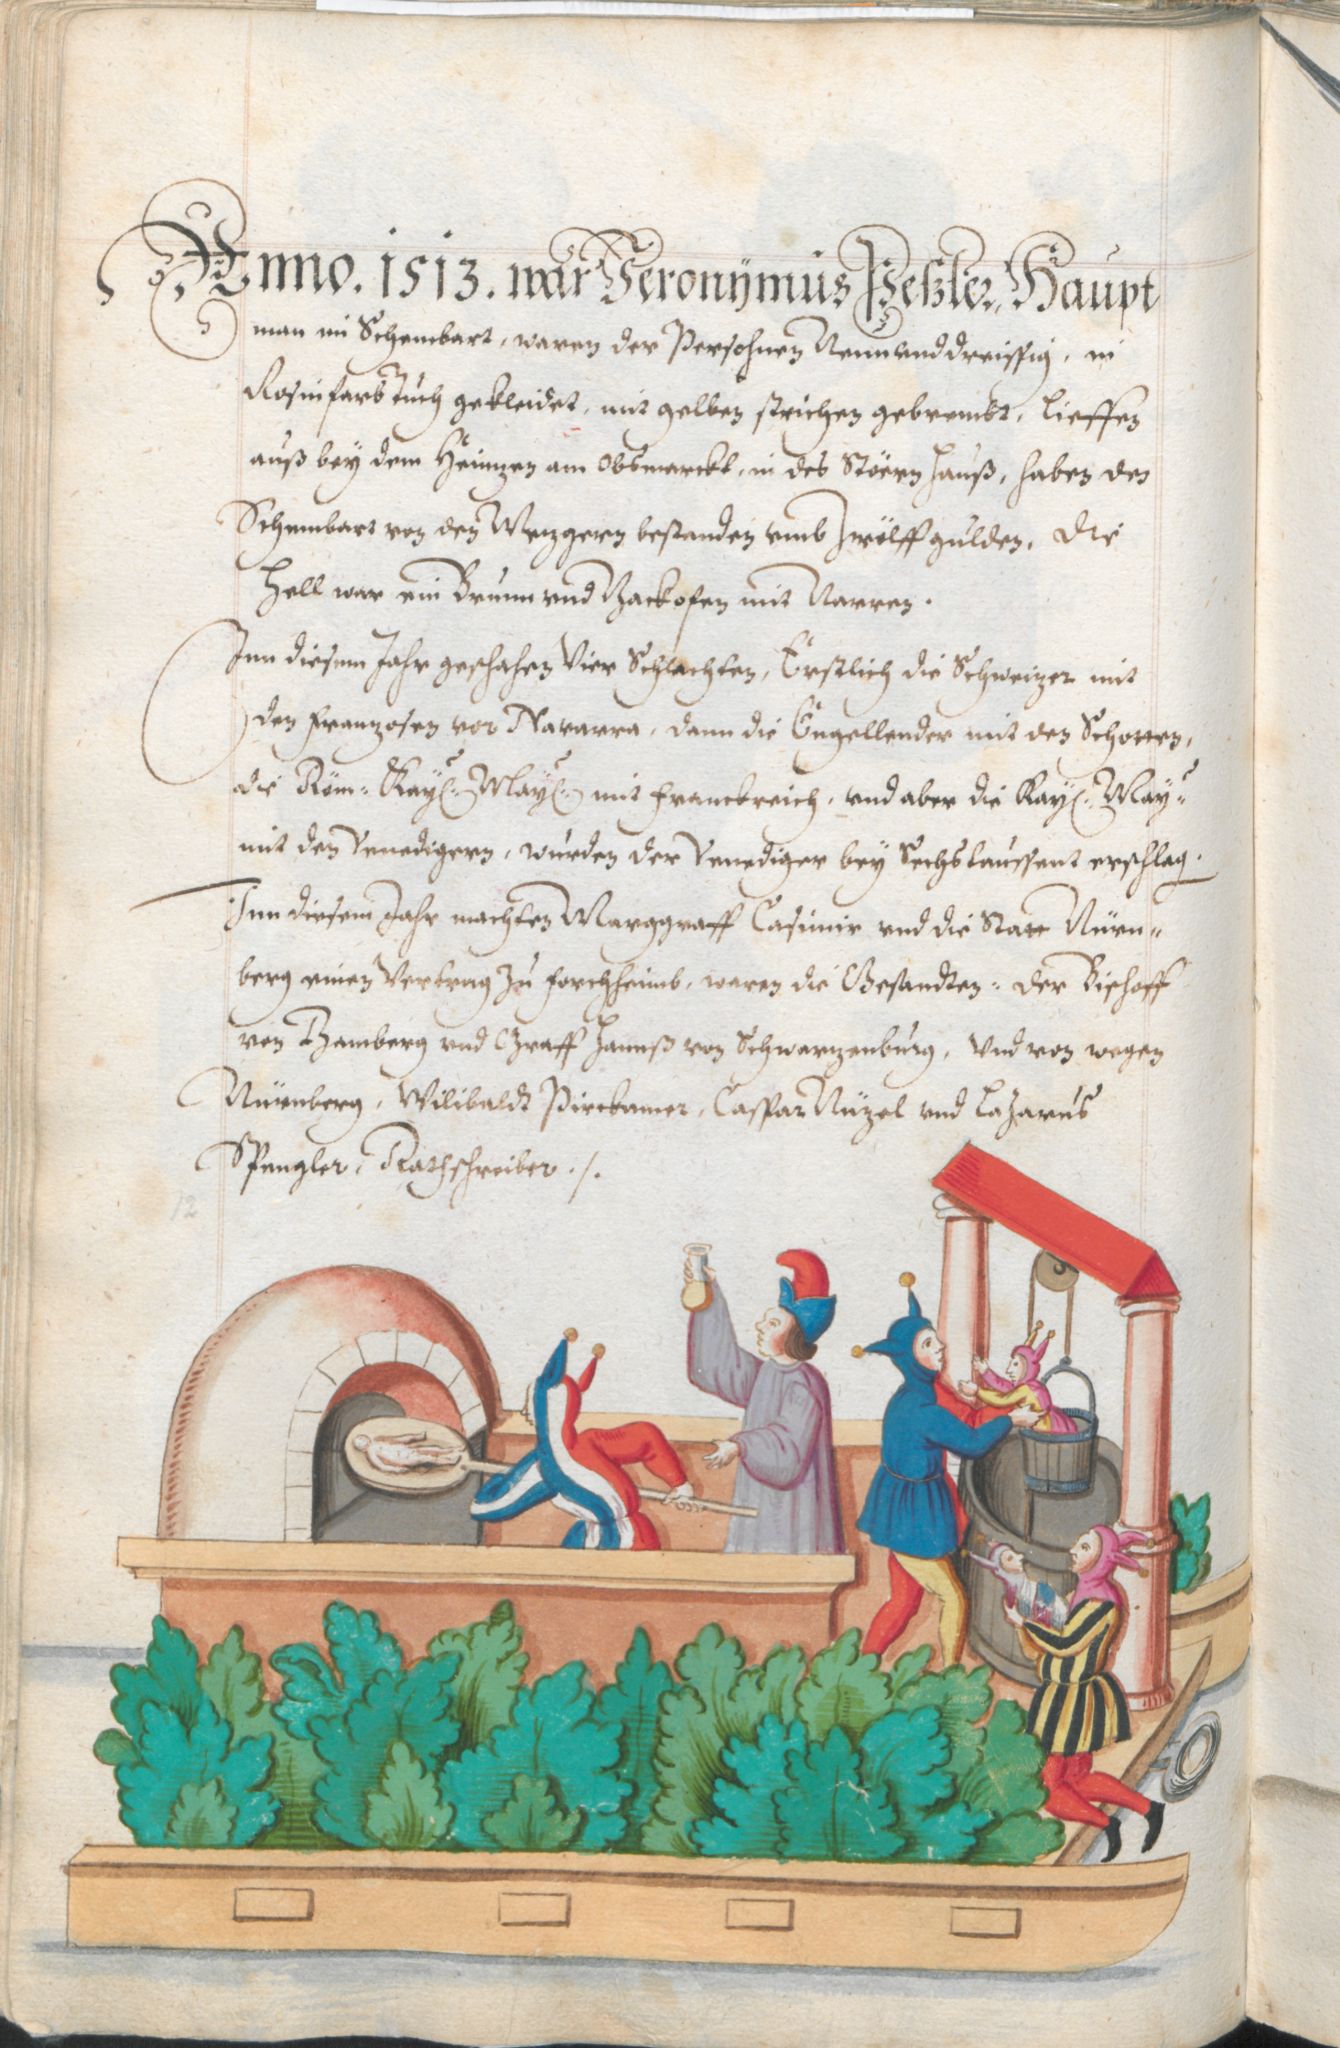 Anno. 1513. war Jeronÿmus Peßler, Haupt
man im Schembart, waren der Persohnen Neununddreissig, in
Rosinfarb Tuch gekleidet, mit gelben strichen gebrembt, lieffen
auß beÿ dem Heunzen am Obsmarckt, in des Stören Hauß, haben den
Schembart von den Mezgern bestanden umb Zwölff gulden. Die
Hell war ein Brunn und Backofen mit Narren.
Inn diesem Jahr geschahen Vier Schlachten, Erstlich die Schweizer mit
den Franzosen vor Navarra, dann die Engellender mit den Schotten,
die Röm: Kaÿ: Maÿ: mit Franckreich, und aber die Kaÿ: Maÿ:
mit den Venedigern, wurden der Venediger beÿ Sechstaussent erschlag.
Inn diesem Jahr machten Marggraff Casimir und die Statt Nürn-
berg einen Vertrag zu Forchheimb, waren die Gesandten: der Bischoff
von Bamberg und Graff Hannß von Schwarzenburg, Und von wegen
Nürnberg, Wilibaldt Pirckamer, Caspar Nüzel und Lazarus
Spengler, Rathschreiber ./.
12